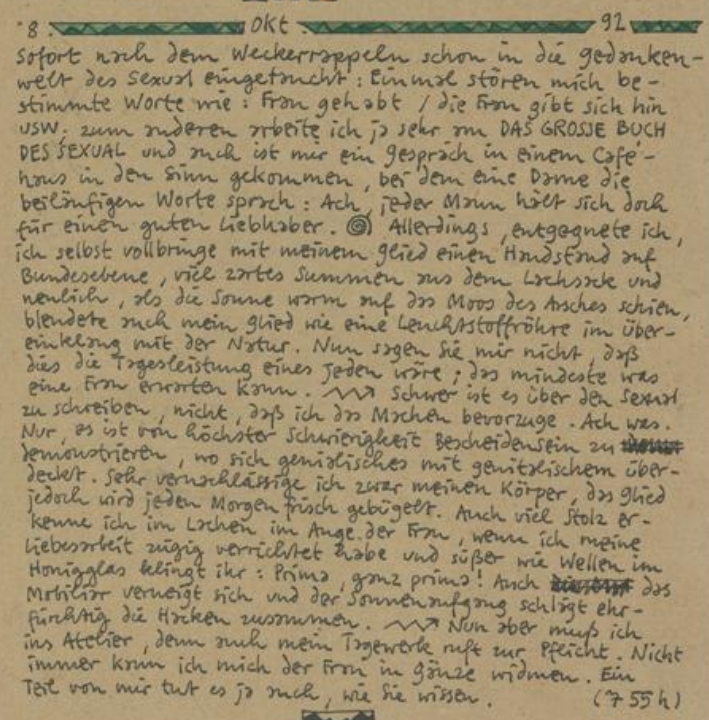 8. Okt. 92
sofort nach dem Weckerrappeln schon in die gedanken-
welt des Sexual eingetaucht: Einmal stören mich be-
stimmte Worte wie: Frau gehabt / die Frau gibt sich hin
usw; zum anderen arbeite ich ja sehr am DAS GROSSE BUCH
DES SEXUAL und auch ist mir ein gespräch in einem Café-
haus in den Sinn gekommen, bei dem eine Dame die
beiläufigen Worte sprach: Ach, jeder Mann hält sich doch
für einen guten Liebhaber. Allerdings, entgegnete ich,
ich selbst vollbringe mit meinem glied einen Handstand auf
Bundesebene, viel zartes Summen aus dem Lachsacke und
neulich, als die Sonne warm auf das Moos des Arsches schien,
blendete auch mein glied wie eine Leuchtstoffröhre im über-
einklang mit der Natur. Nun sagen Sie mir nicht, daß
dies die Tagesleistung eines jeden wäre; das mindeste was
eine Frau erwarten kann. Schwer ist es über den Sexual
zu schreiben, nicht, daß ich das Machen bevorzuge. Ach was.
Nur, es ist von höchster Schwierigkeit Bescheidensein zu
demonstrieren, wo sich genialisches mit genitalischem über-
deckt. Sehr vernachlässige ich zwar meinen Körper, das glied
jedoch wird jeden Morgen frisch gebügelt. Auch viel Stolz er-
kenne ich im Lachen im Auge der Frau, wenn ich meine
Liebesarbeit zügig verrichtet habe und süßer wie Wellen im
Honigglas klingt ihr: Prima, ganz prima! Auch das
Mobiliar verneigt sich und der Sonnenaufgang schlägt ehr-
fürchtig die Hacken zusammen. Nun aber muß ich
ins Atelier, denn auch mein Tagewerk ruft zur Pflicht. Nicht
immer kann ich mich der Frau in gänze widmen. Ein
Teil von mir tut es ja auch, wie Sie wissen. (7 55 h)